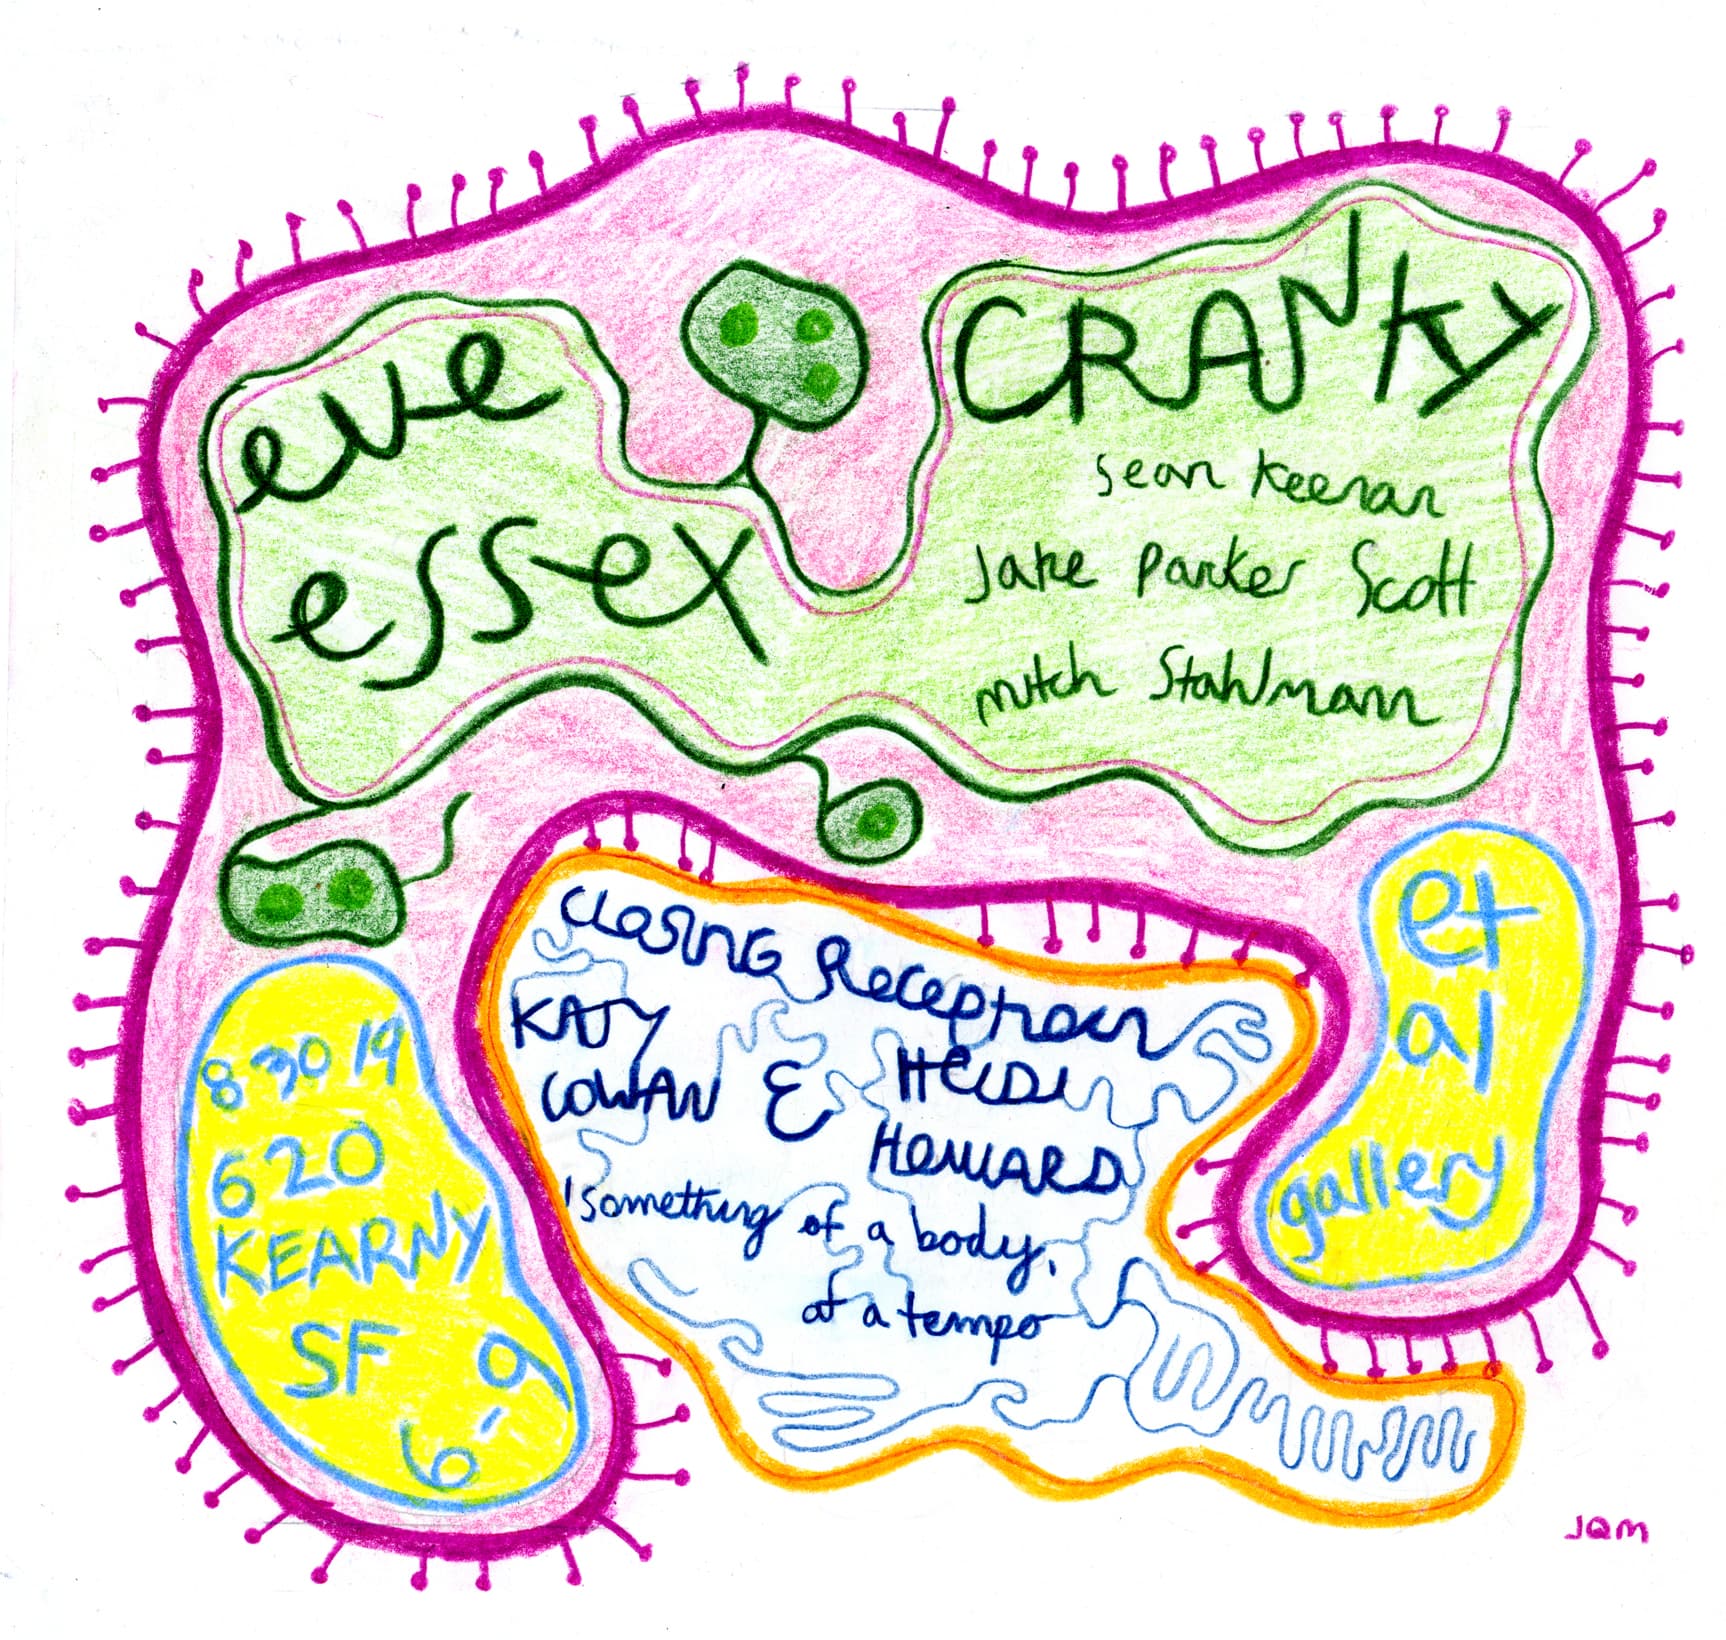 eve
essex
CRANKY
Sean Keenan
Jake Parker Scott
mitch Stahlmann
closing Reception
KATY
COWAN & HEIDI
HOWARD
'something of a body,
at a tempo
et
al
gallery
8 30 19
620
KEARNY
SF
6-9
JQM